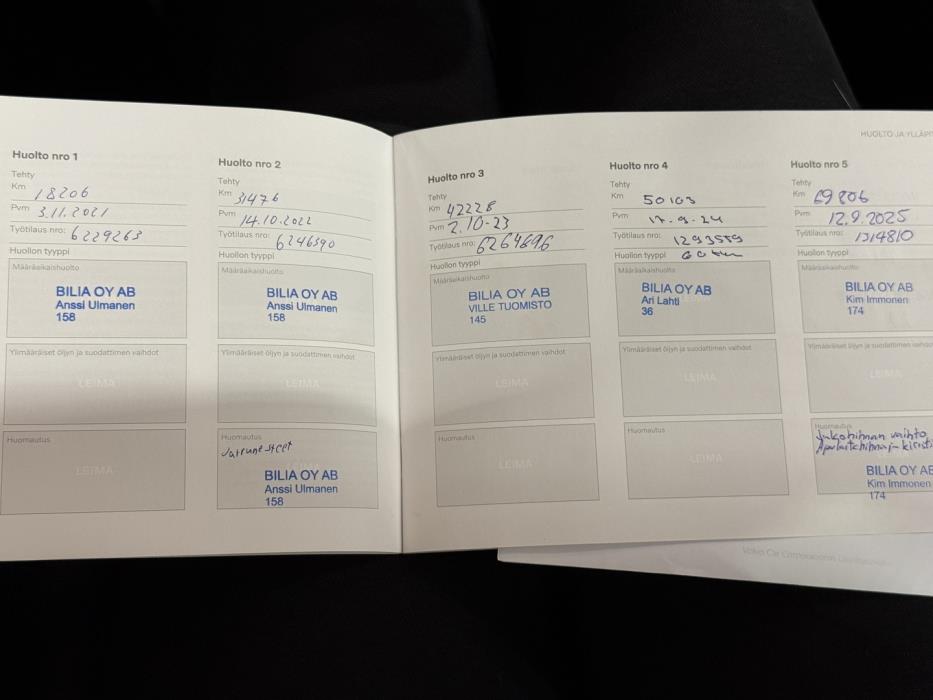 HUOLTO JA YLLÄPI
Huolto nro 1
Tehty
Km 18206
Pvm 3.11.2021
Työtilaus nro: 6229263
Huollon tyyppi
Määräaikaishuolto
BILIA OY AB
Anssi Ulmanen
158
Ylimääräiset öljyn ja suodattimen vaihdot
LEIMA
Huomautus
LEIMA
Huolto nro 2
Tehty
Km 31476
Pvm 14.10.2022
Työtilaus nro: 6246590
Huollon tyyppi
Määräaikaishuolto
BILIA OY AB
Anssi Ulmanen
158
Ylimääräiset öljyn ja suodattimen vaihdot
LEIMA
Huomautus
Jarrunesteet
BILIA OY AB
Anssi Ulmanen
158
Huolto nro 3
Tehty
Km 42228
Pvm 2.10-23
Työtilaus nro: 6264696
Huollon tyyppi
Määräaikaishuolto
BILIA OY AB
VILLE TUOMISTO
145
Ylimääräiset öljyn ja suodattimen vaihdot
LEIMA
Huomautus
LEIMA
Huolto nro 4
Tehty
Km 50103
Pvm 17.9.24
Työtilaus nro: 1293579
Huollon tyyppi
Määräaikaishuolto
BILIA OY AB
Ari Lahti
36
Ylimääräiset öljyn ja suodattimen vaihdot
LEIMA
Huomautus
LEIMA
Huolto nro 5
Tehty
Km 69806
Pvm 12.9.2025
Työtilaus nro: 1314810
Huollon tyyppi
Määräaikaishuolto
BILIA OY AB
Kim Immonen
174
Ylimääräiset öljyn ja suodattimen vaihdot
LEIMA
Huomautus
Jakohihnan vaihto
Apulaitehihna ja kiristi
BILIA OY AB
Kim Immonen
174
Volvo Car Corporation